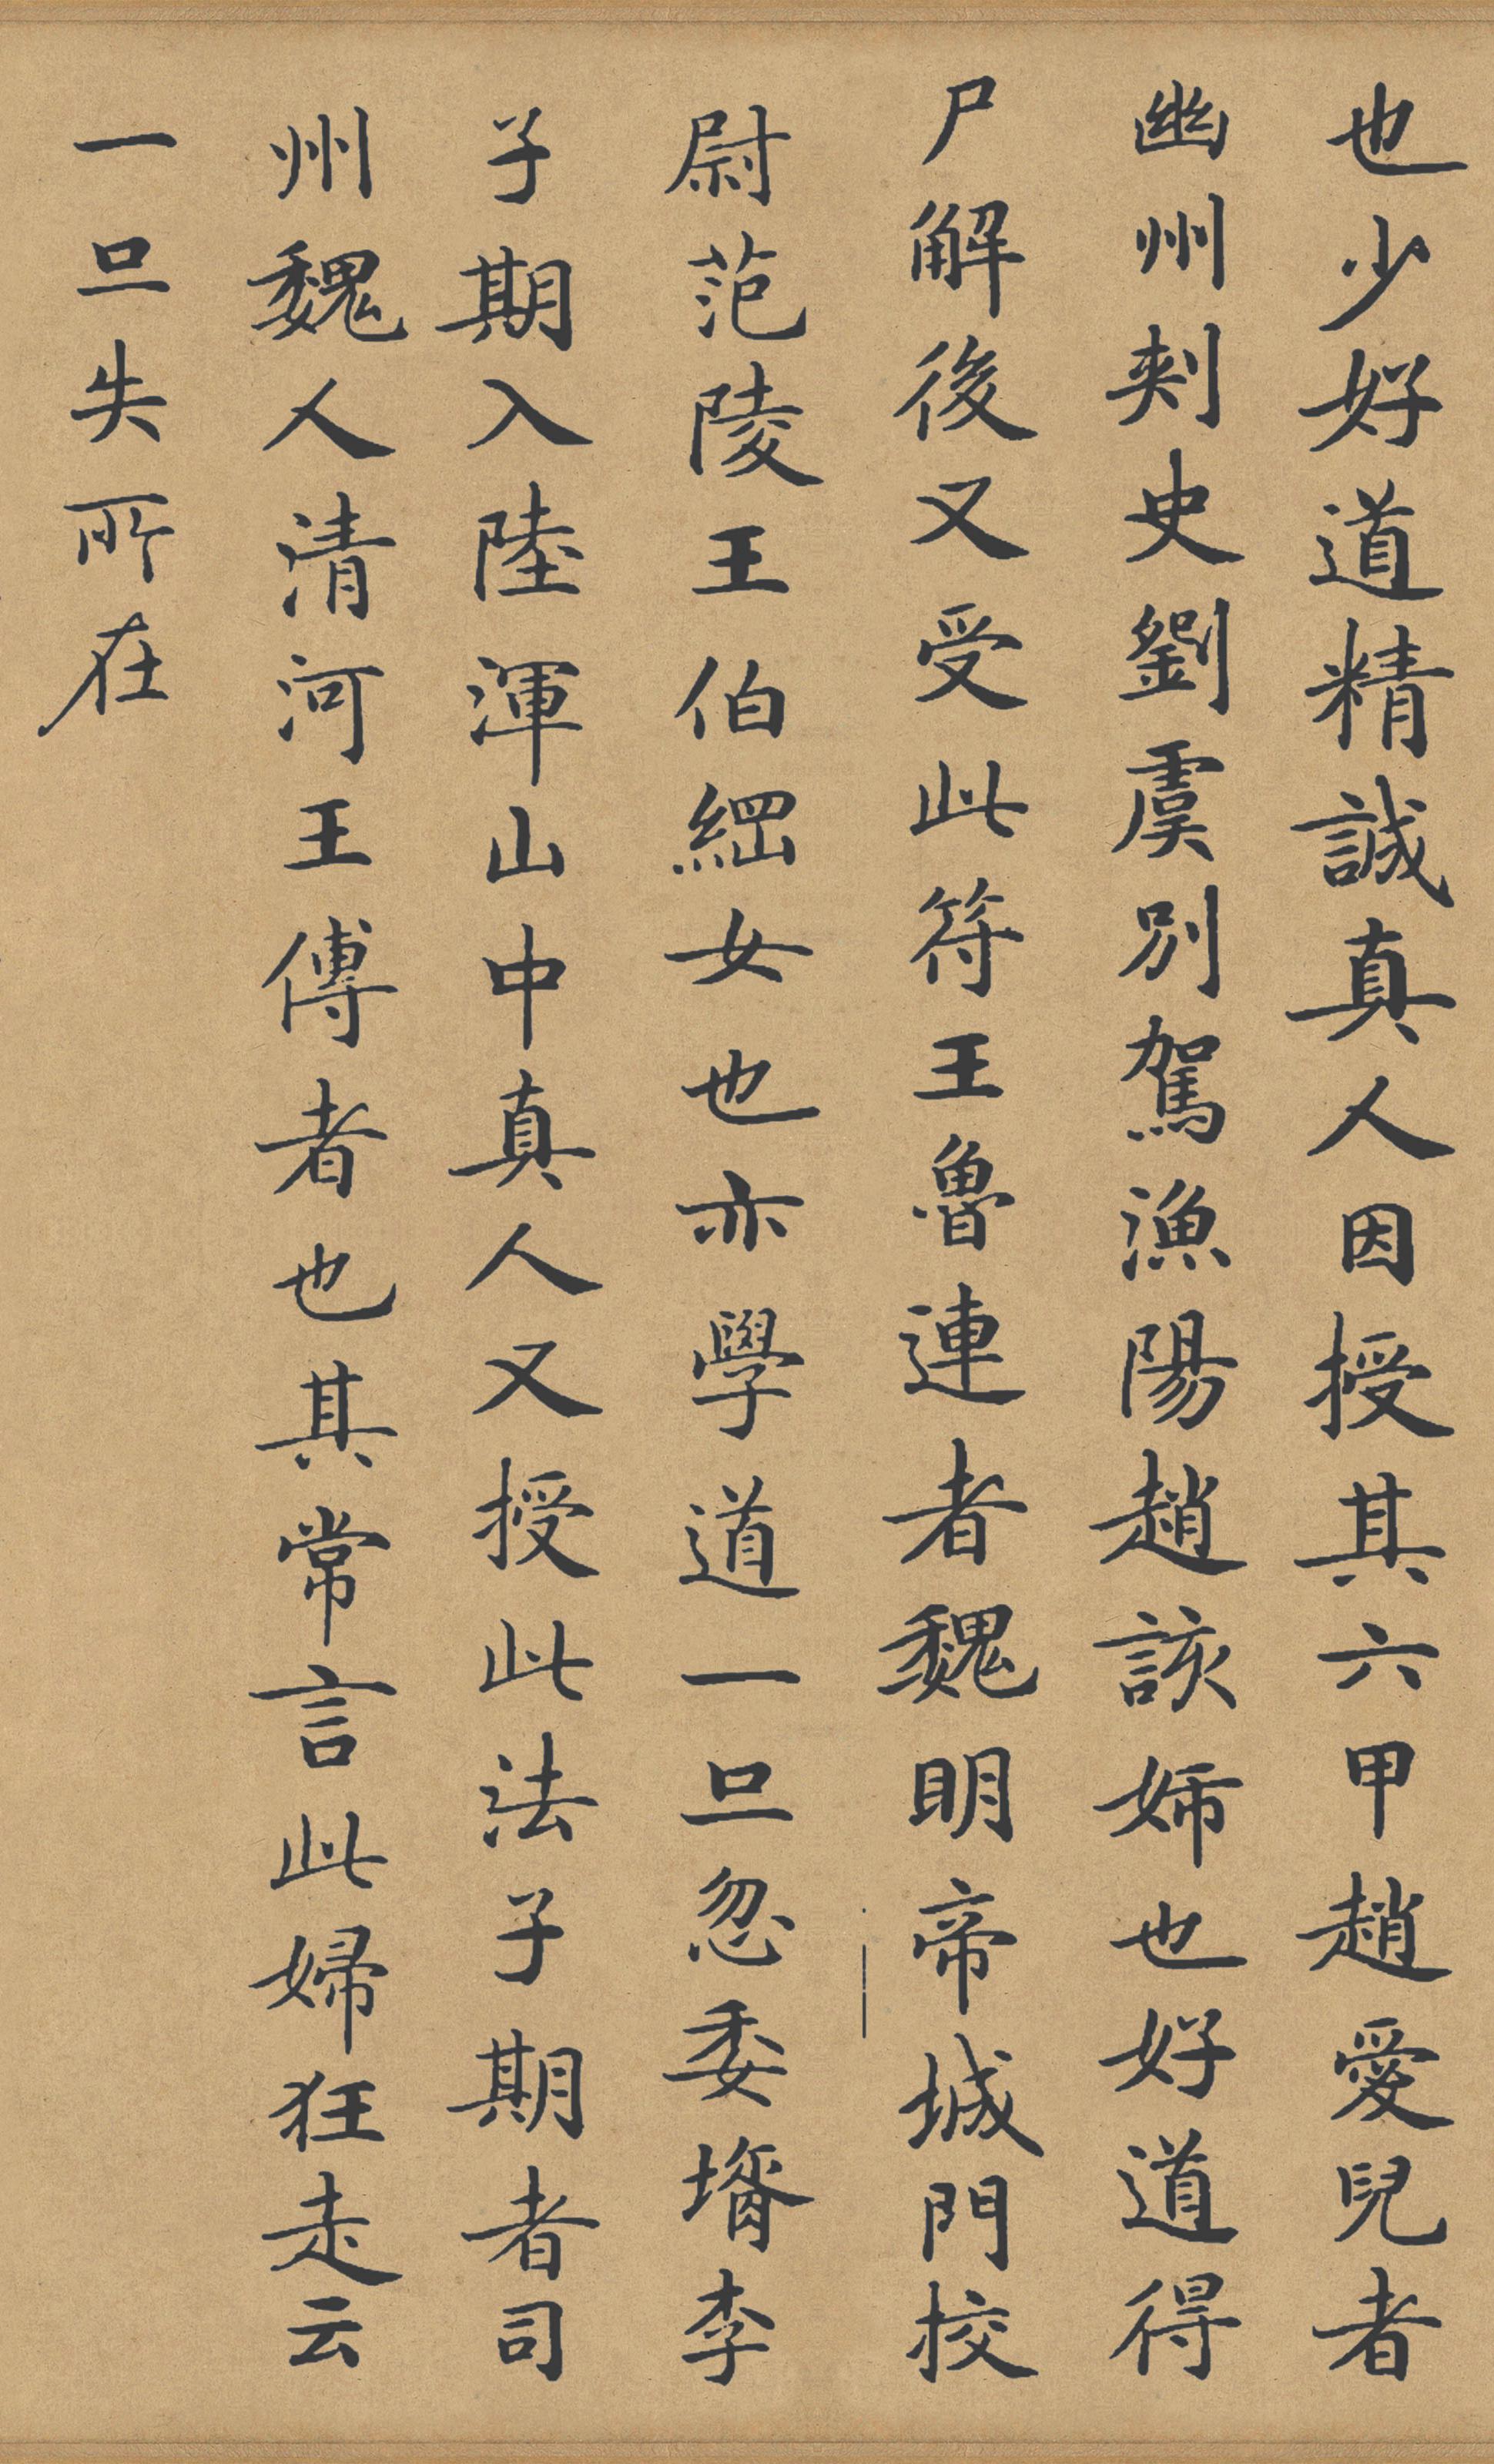 也少好道精誠真人因授其六甲趙愛兒者
幽州刾史劉虞別駕漁陽趙該姊也好道得
尸解後又受此符王魯連者魏明帝城門校
尉范陵王伯綱女也亦學道一旦忽委壻李
子期入陸渾山中真人又授此法子期者司
州魏人清河王傅者也其常言此婦狂走云
一旦失所在